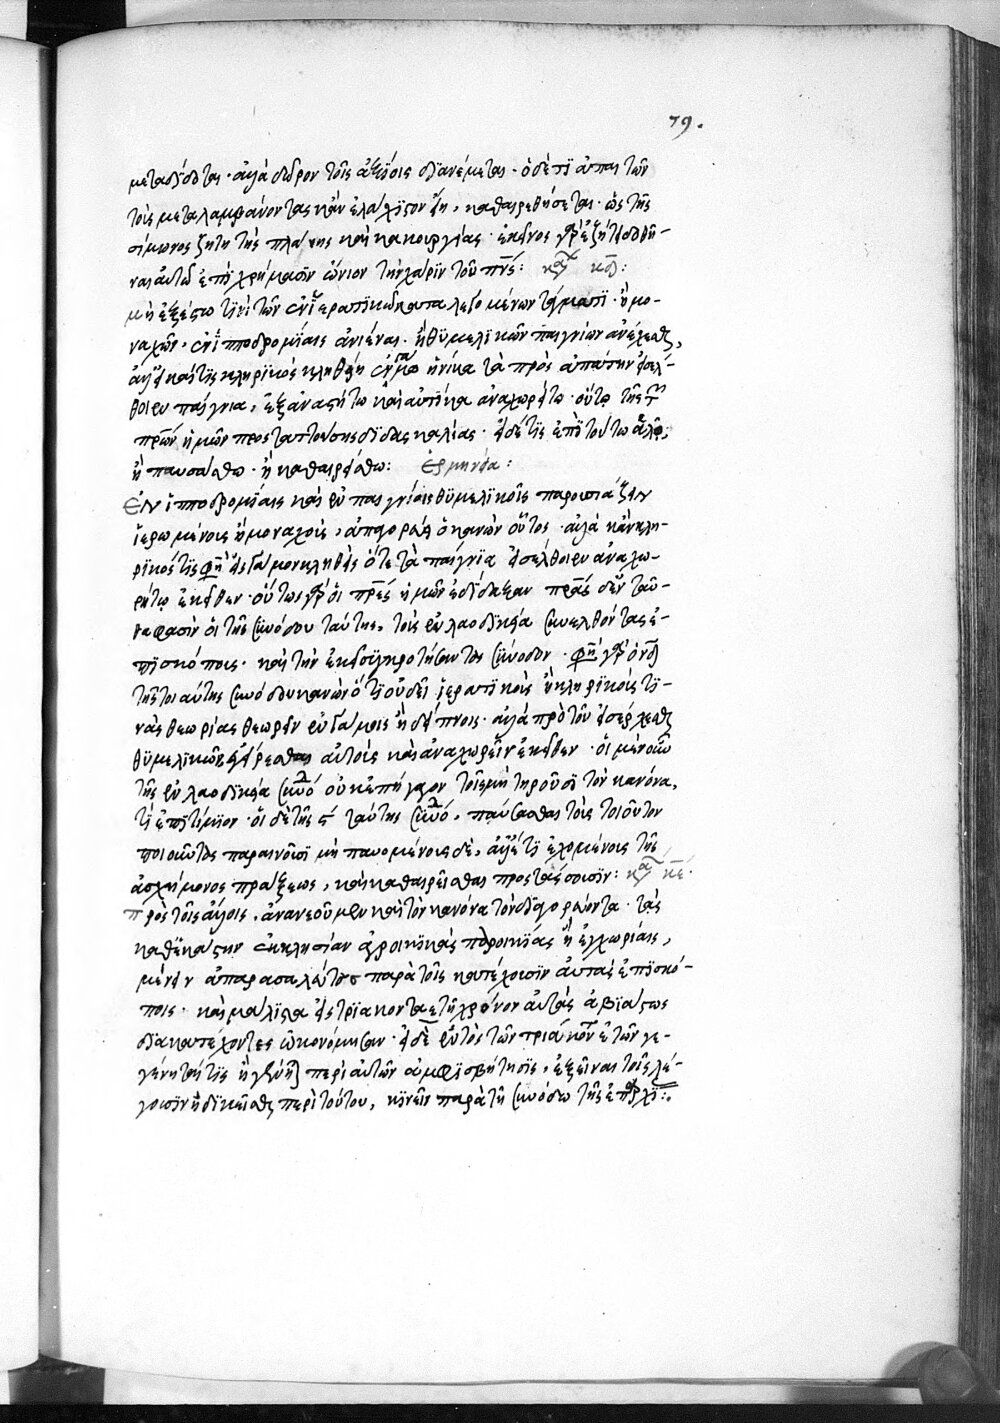 79.
μεταδίδοται· ἀλλὰ δῶρον τοῖς ἀξίοις διανέμεται· ὁ δέ τι ἀπαιτῶν
τοὺς μεταλαμβάνοντας κἂν ἐλάχιστον ᾖ, καθαιρεθήσεται· ὡς τῆς
σίμωνος ζηλωτὴς πλάνης καὶ κακουργίας· ἐκεῖνος γὰρ ἐζήτει δοθῆ-
ναι αὐτῷ ἐπὶ χρήμασιν ὤνιον τὴν χάριν τοῦ πνς: καν κδ:
μὴ ἐξέστω τινὶ τῶν ἐν ἱερατικῷ καταλεγομένων τάγματι· ἢ μο-
ναχῶν, ἐν ἱπποδρομίαις ἀνιέναι· ἢ θυμελικῶν παιγνίων ἀνέχεσθαι,
ἀλλ' εἰ καί τις κληρικὸς κληθείη ἐν γάμῳ ἡνίκα τὰ πρὸς ἀπάτην εἰσέλ-
θοιεν παίγνια, ἐξαναστήτω καὶ αὐτίκα ἀναχωρείτω· οὕτω τῆς τῶν
πρων ἡμῶν προσταττούσης διδασκαλίας· εἰ δέ τις ἐπὶ τούτῳ ἁλῷ,
ἢ παυσάσθω· ἢ καθαιρείσθω: Ἑρμηνεία:
Ἐν ἱπποδρομίαις καὶ ἐν παιγνίοις θυμελικοῖς παρουσιάζειν
ἱερωμένοις ἢ μοναχοῖς, ἀπαγορεύει ὁ κανὼν οὗτος· ἀλλὰ κἂν κλη-
ρικός τις φησὶ εἰς γάμον κληθεὶς ὅτε τὰ παίγνια εἰσέλθοιεν ἀναχω-
ρήτω ἐκεῖθεν· οὕτως γὰρ οἱ πρες ἡμῶν ἐδίδαξαν πρας δὲ ἐνταῦ-
θα φασὶν οἱ τῆς συνόδου ταύτης, τοὺς ἐν λαοδικείᾳ συνελθόντας ἐ-
πισκόπους· καὶ τὴν ἐκεῖσε συγκροτήσαντας σύνοδον· φησὶ γὰρ ὁ νδ
τῆς τοιαύτης συνόδου κανὼν ὅτι οὐ δεῖ ἱερατικοὺς ἢ κληρικοὺς τι-
νὰς θεωρίας θεωρεῖν ἐν γάμοις ἢ δείπνοις· ἀλλὰ πρὸ τοῦ εἰσέρχεσθαι
θυμελικοὺς ἐγείρεσθαι αὐτοὺς καὶ ἀναχωρεῖν ἐκεῖθεν· οἱ μὲν οὖν
τῆς ἐν λαοδικείᾳ συνό οὐκ ἐπήγαγον τοῖς μὴ τηροῦσι τὸν κανόνα,
τὶ ἐπιτίμιον· οἱ δὲ τῆς ς ταύτης συνό, παύσασθαι τοὺς τοιοῦτον
ποιοῦντας παραινοῦσι μὴ παυομένους δὲ, ἀλλ' ἔτι ἐχομένους τῆς
ἀσχήμονος πράξεως, καὶ καθαιρεῖσθαι προστάσσουσιν: καν κε·
πρὸς τοῖς ἄλλοις, ἀνανεοῦμεν καὶ τὸν κανόνα τὸν διαγορεύοντα· τὰς
καθ' ἑκάστην ἐκκλησίαν ἀγροικικὰς παροικίας ἢ ἐγχωρίους,
μένειν ἀπαρασαλεύτους παρὰ τοῖς κατέχουσιν αὐτὰς ἐπισκό-
ποις· καὶ μάλιστα εἰ τριακονταετῆ χρόνον αὐτὰς ἀβιάστως
διακατέχοντες ᾠκονόμησαν· εἰ δὲ ἐντὸς τῶν τριάκοντα ἐτῶν γε-
γένηταί τις ἢ γένηται περὶ αὐτῶν ἀμφισβήτησις, ἐξεῖναι τοῖς λέ-
γουσιν ἠδικεῖσθαι περὶ τούτου, κινεῖν παρὰ τῇ συνόδῳ τῆς ἐπαρχί:.